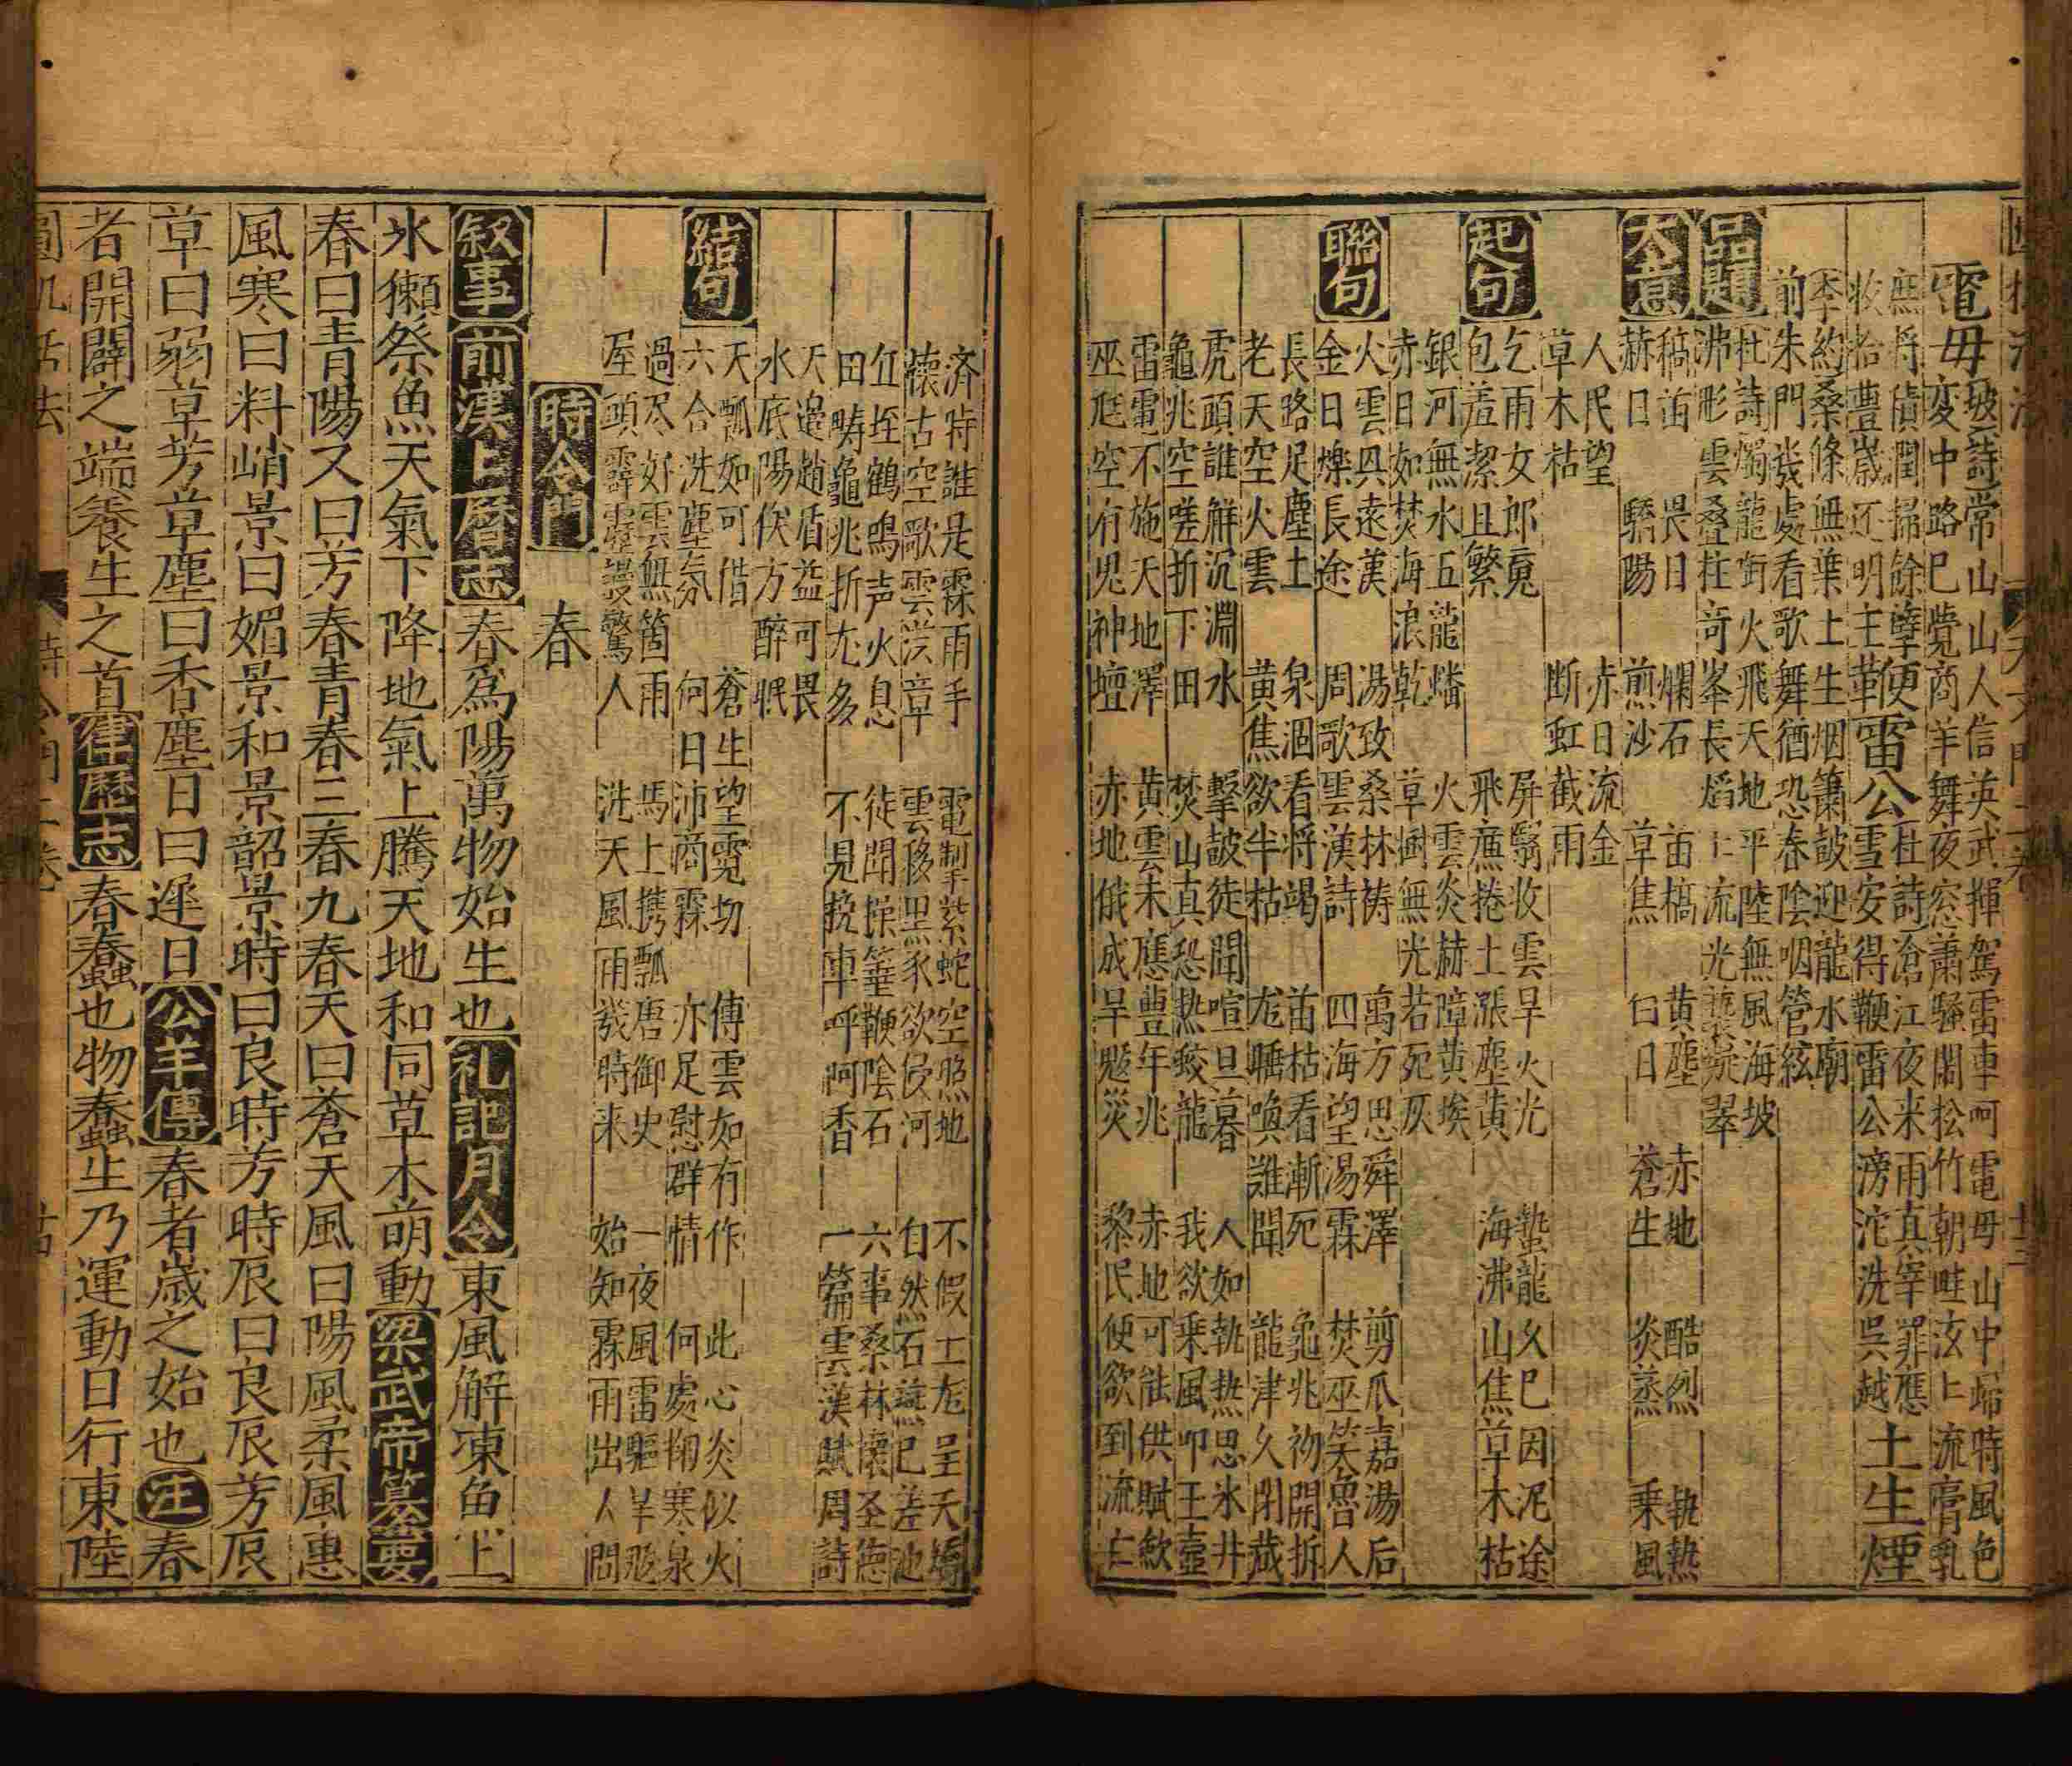 電母坡詩常山山人信英武揮駕雷車呵電母山中歸時風色
変中路已覺商羊舞夜窓蕭騷鬧松竹朝畦泫上流膏乳
無將積潤掃餘孽便雷公杜詩滄江夜来雨真宰罪應土生煙
收拾豊歳还明主革雪安得鞭雷公滂沱洗呉越
李約桑條無葉上生烟簫鼓迎龍水廟
前朱門幾處看歌舞猶恐春陰咽管絃
品題
杜詩燭龍街火飛天地平陸無風海坡
沸彤雲叠柱奇峯長熖上流光
大意
稿苗 畏日 爛石 苗槁 黄塵 赤地 酷烈 執熱
赫日 驕陽 煎沙 草焦 白日 蒼生 炎蒸 乗風
人民望 赤日流金
草木枯 断虹截雨
起句
乞雨女郎魂 屏翳收雲旱火光 蟄龍久已因泥途
包羞潔且繁 飛廉捲土漲塵黄 海沸山焦草木枯
銀河無水五龍蟠 火雲炎赫障黄埃
赤日如焚海浪乾 草樹無光若死灰
聯句
火雲具遠漢 湯致桑林祷 萬方思舜澤 剪爪嘉湯后
金日爍長途 周歌雲漢詩 四海望湯霖 焚巫笑魯人
長路足塵土 泉涸看將竭 苗枯看漸死 龜兆初開拆
老天空火雲 黄焦欲半枯 尨睡喚誰聞 龍津久閉藏
虎頭誰觧沉淵水 擊皷徒聞喧旦暮 人如執热思氷井
龜兆空嗟折下田 焚山真恐热蛟龍 我欲乗風叩玉壷
雷電不施天地澤 黄雲未應豊年兆 赤地可能供賦歛
巫尫空有鬼神壇 赤地俄成旱魃災 黎民便欲到流亡
済時誰是霖雨手 電掣紫蛇空照地 不假土尨呈天矯
懐古空歌雲漢章 雲移黒豕欲侵河 自然石鷰已差池
丘垤鶴鳴声火息 徒聞操箠鞭陰石 六事桑林懐圣德
田畴龜兆折尤多 不見挽車呼阿香 一篇雲漢賦周詩
天邉趙盾益可畏
水底陽伏方醉眠
結句
天瓢如可借 蒼生望霓切 傳雲如有作 此心炎似火
六合洗塵氛 何日沛商霖 亦足慰群情 何處掬寒泉
過尽好雲無箇雨 馬上携瓢唐御史 一夜風雷驅旱魃
屋頭霹靂謾驚人 洗天風雨幾時来 始知霖雨出人間
時令門
春
叙事 前漢上暦志 春爲陽萬物始生也 礼記月令 東風解凍魚上
氷獺祭魚天氣下降地氣上騰天地和同草木萌動 梁武帝纂要
春曰青陽又曰芳春青春三春九春天曰蒼天風曰陽風柔風惠
風寒曰料峭景曰媚景和景韶景時曰良時芳時辰曰良辰芳辰
草曰弱草芳草塵曰香塵日曰遲日 公羊傳 春者歳之始也 注 春
者開闢之端養生之首 律歷志 春蠢也物蠢生乃運動日行東陸